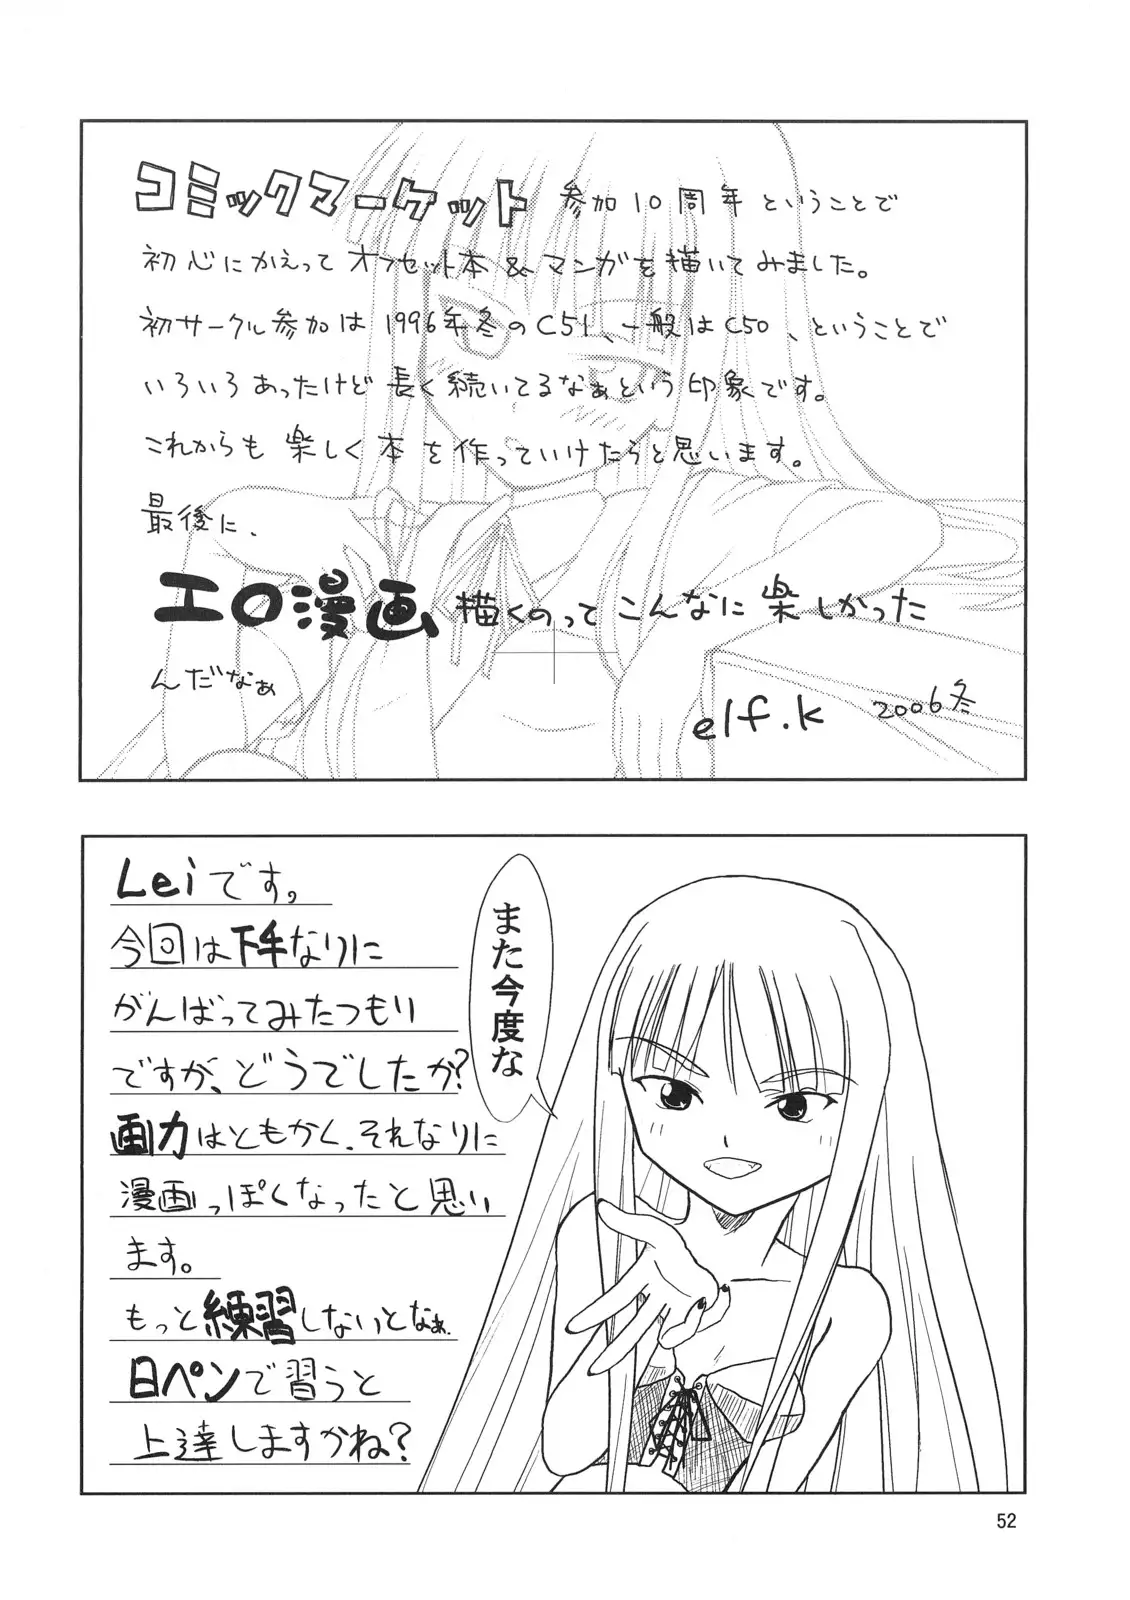 コミックマーケット 参加10周年ということで
初心にかえって オフセット本＆マンガを描いてみました。
初サークル参加は1996年冬のC51、一般はC50、ということで
いろいろあったけど長く続いてるなぁという印象です。
これからも楽しく本を作っていけたらと思います。
最後に、
エロ漫画描くのってこんなに楽しかった
んだなぁ
elf.k 2006冬
Leiです。
今回は下手なりに
がんばってみたつもり
ですが、どうでしたか?
画力はともかく、それなりに
漫画っぽくなったと思い
ます。
もっと練習しないとなぁ.
日ペンで習うと
上達しますかね?
また今度な
52